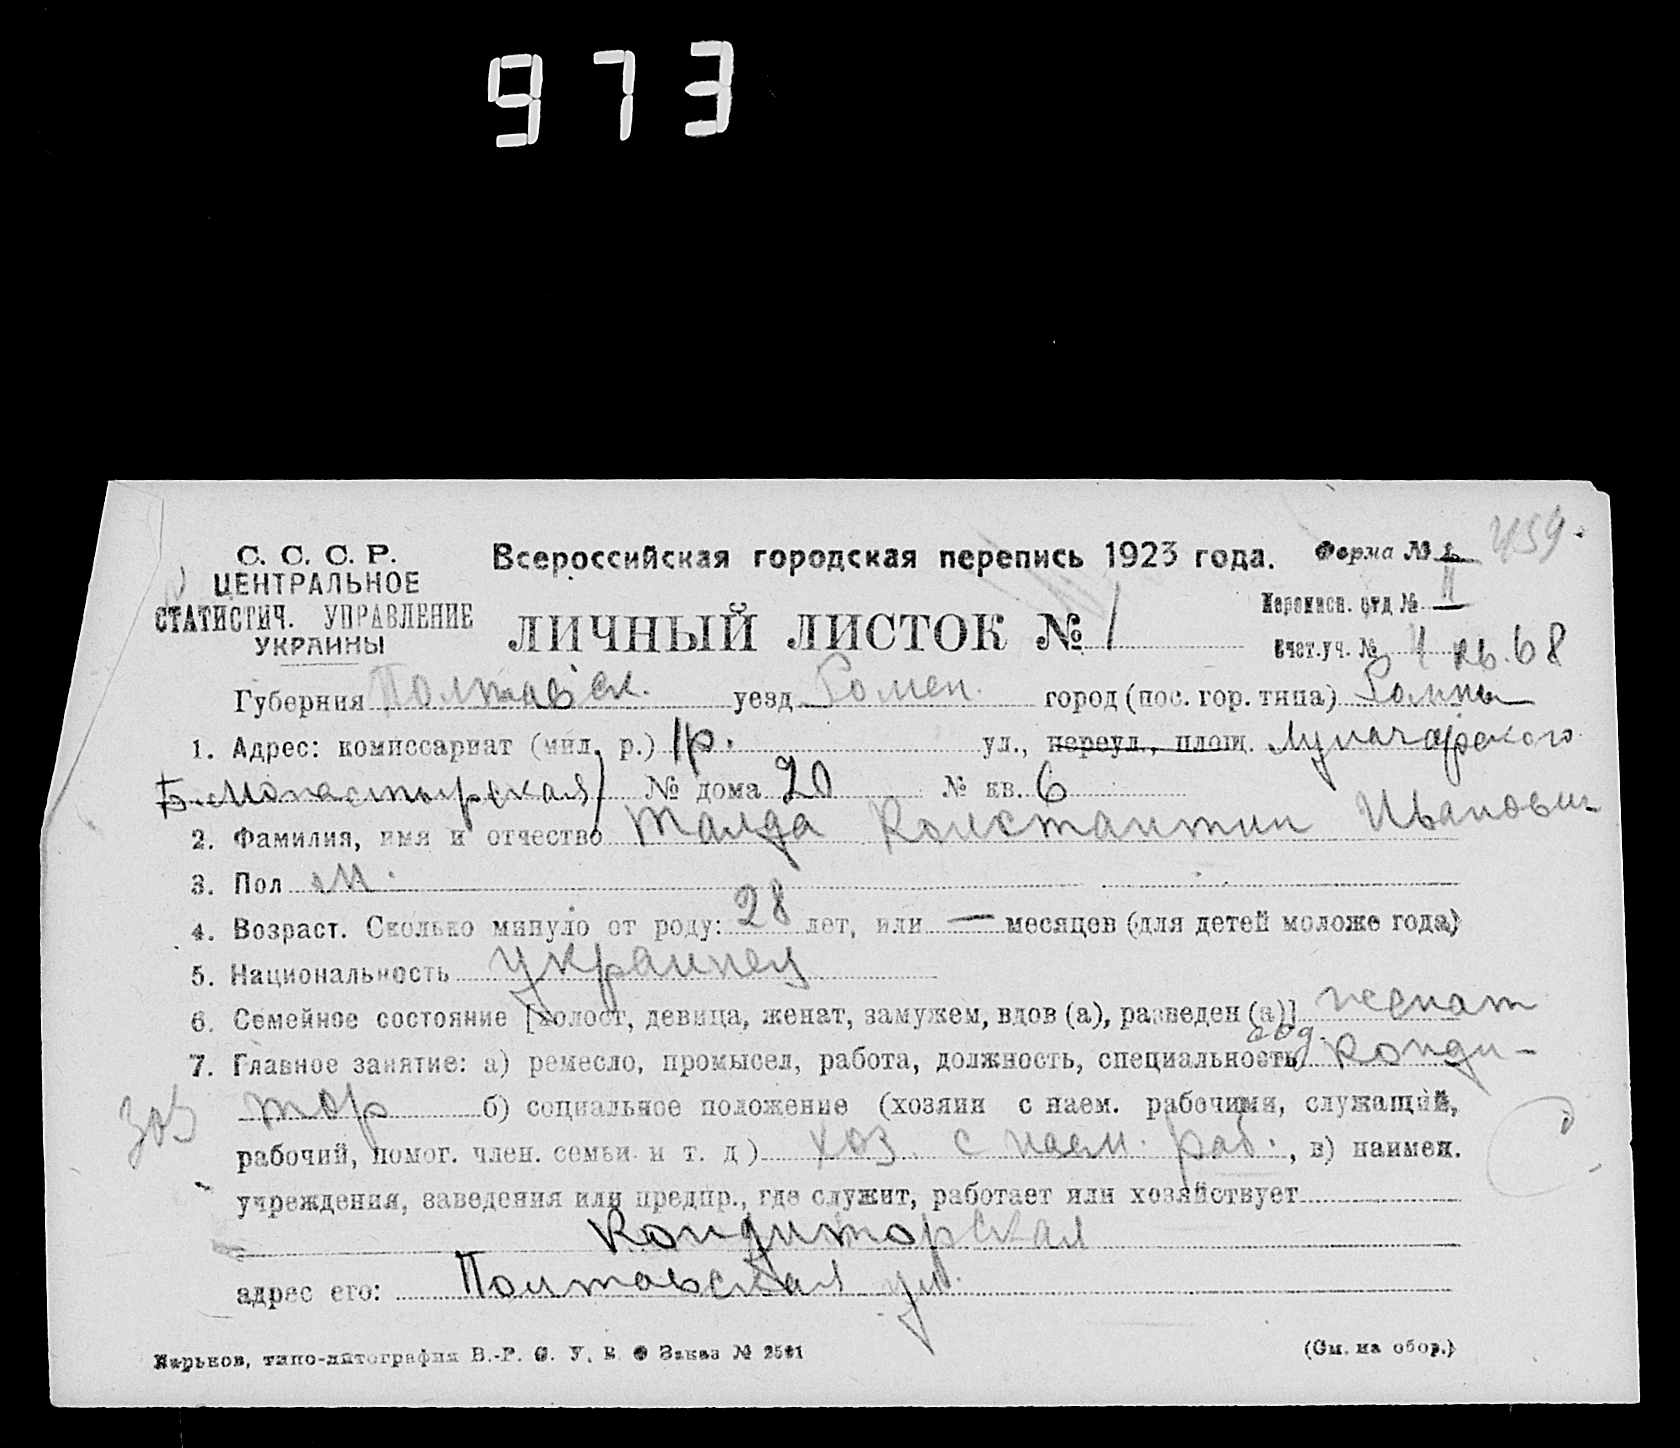 973
С. С. С. Р.
ЦЕНТРАЛЬНОЕ
СТАТИСТИЧ. УПРАВЛЕНИЕ
УКРАИНЫ
Всероссийская городская перепись 1923 года.
Форма № 1.
459.
ЛИЧНЫЙ ЛИСТОК № 1
Переписн. отд № II
Счет.уч. № 4 кв. 68
Губерния Полтавск. уезд Ромен. город (пос. гор. типа) Ромны
1. Адрес: комиссариат (мил. р.) 1р. ул., переул., площ. Луначарского
Б. Монастырская) № дома 20 № кв. 6
2. Фамилия, имя и отчество Талда Константин Иванович
3. Пол м.
4. Возраст. Сколько минуло от роду: 28 лет, или — месяцев (для детей моложе года)
5. Национальность украинец
6. Семейное состояние [холост, девица, женат, замужем, вдов (а), разведен (а)] женат
7. Главное занятие: а) ремесло, промысел, работа, должность, специальность конди-
тор б) социальное положение (хозяин с наем. рабочими, служащий,
рабочий, помог. член. семьи и т. д) хоз. с наем. раб. , в) наимен.
учреждения, заведения или предпр., где служит, работает или хозяйствует
Кондиторская
адрес его: Полтавская ул.
Харьков, типо-литография В.-Р. Заказ №
(См. на обор.)